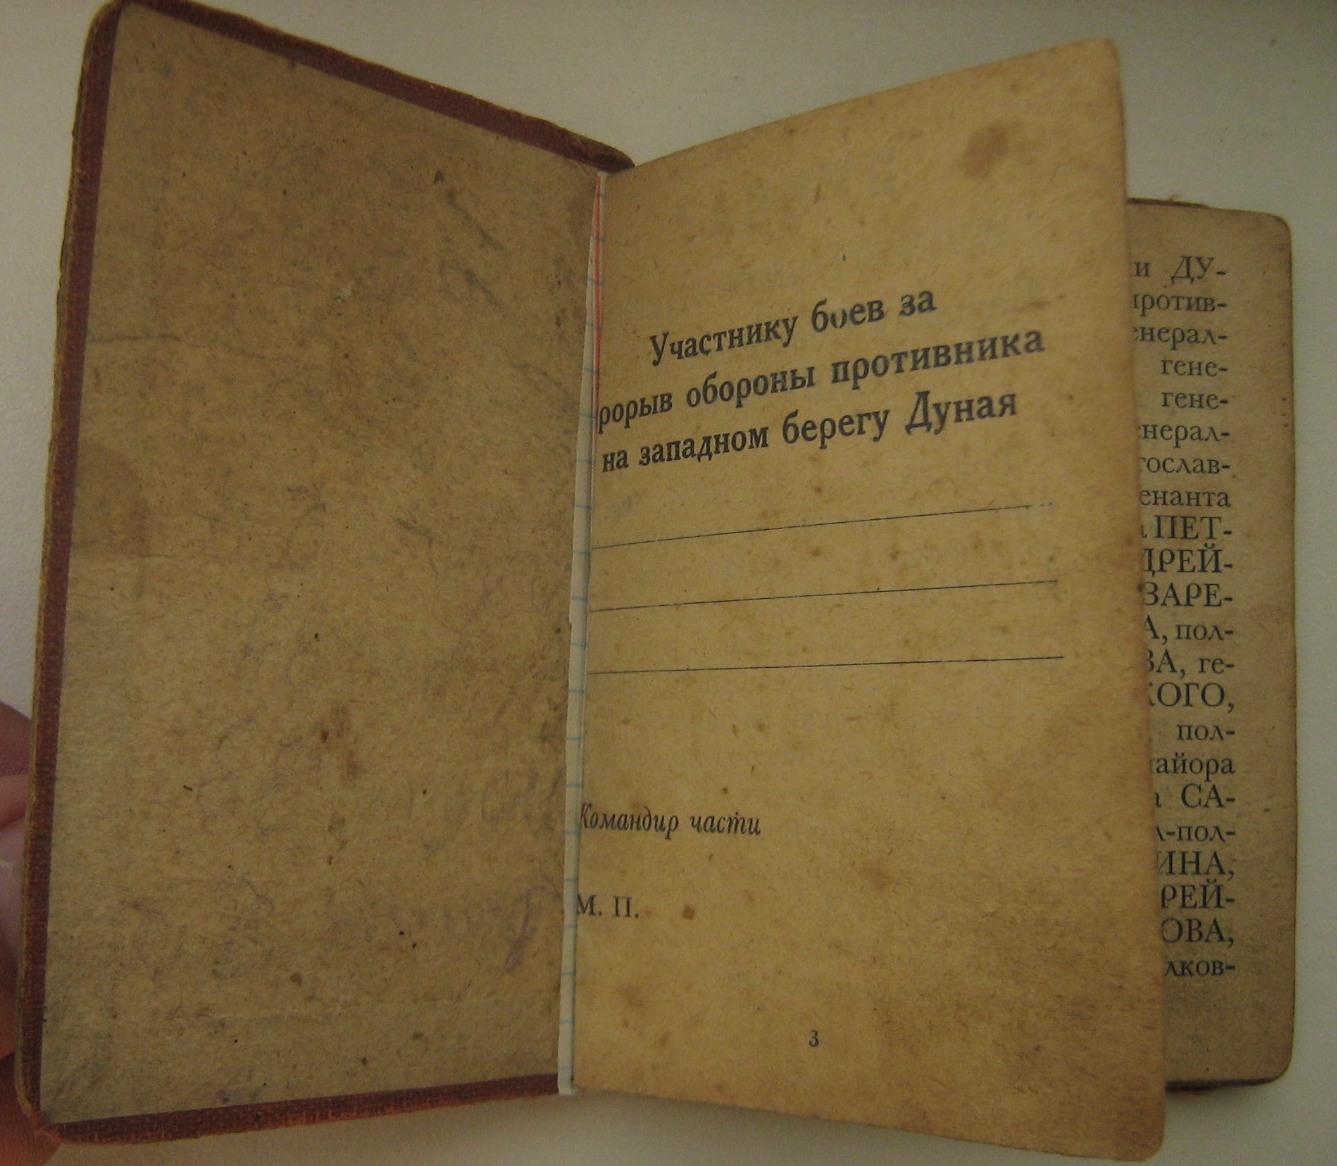 Участнику боев за
рорыв обороны противника
на западном берегу Дуная
Командир части
М. П.
3
и ДУ-
против-
енерал-
гене-
гене-
енерал-
гослав-
енанта
ПЕТ-
ДРЕЙ-
ЗАРЕ-
А, пол-
ВА, ге-
КОГО,
пол-
майора
а СА-
л-пол-
ИНА,
РЕЙ-
ОВА,
лков-